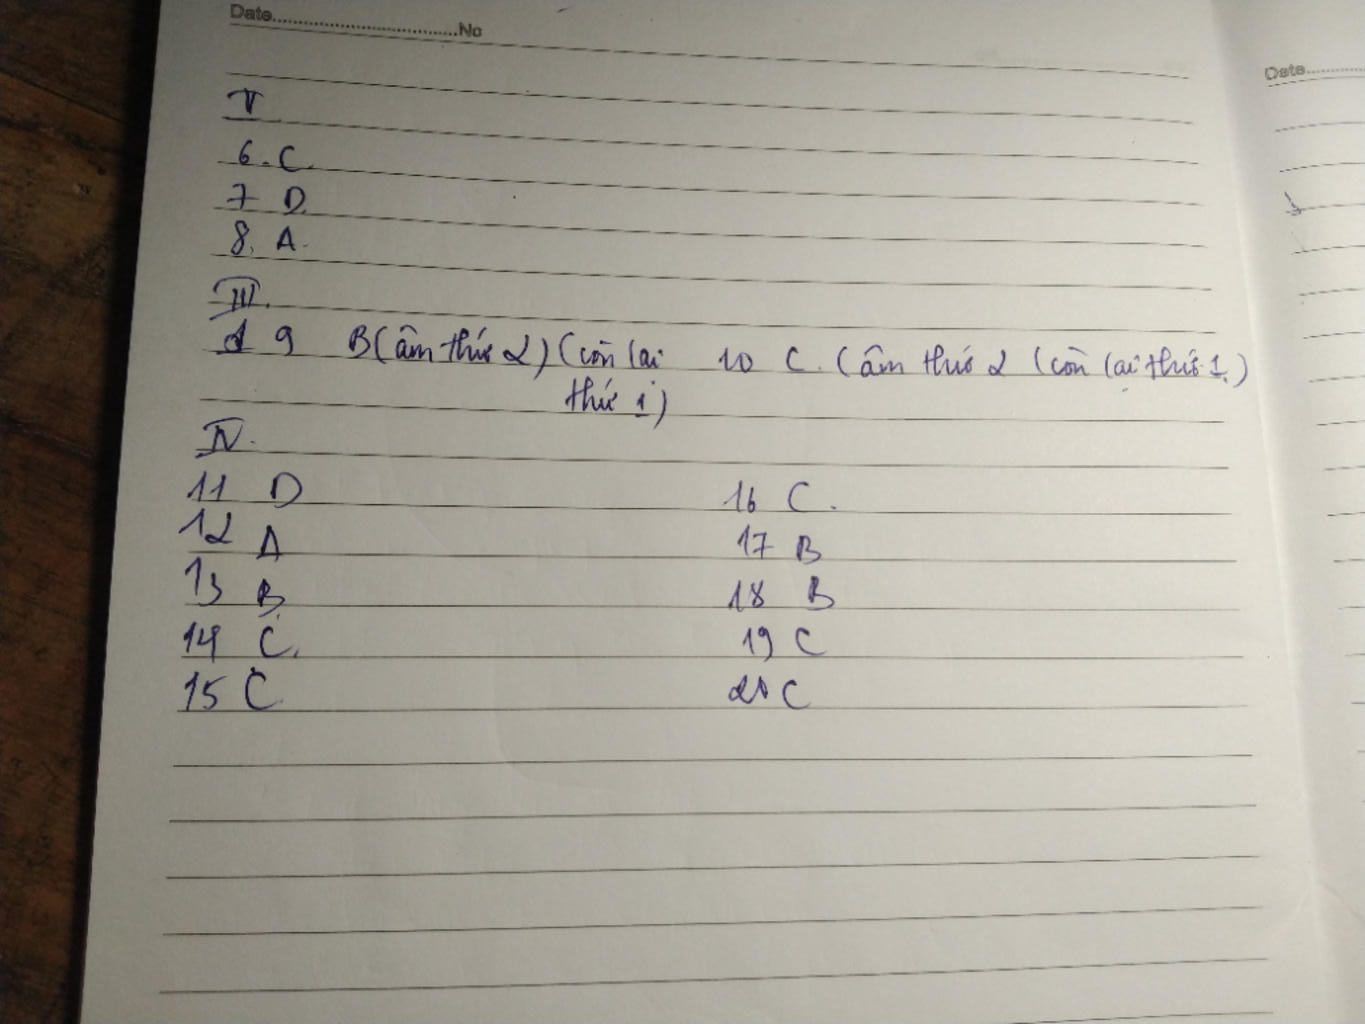 Date....................................No
Date..............
V
6. C.
7 D
8. A.
III.
9 B (âm thứ 2) (còn lại thứ 1) 10 C. (âm thứ 2 (còn lại thứ 1.)
IV.
11 D 16 C.
12 A 17 B
13 B 18 B
14 C. 19 C
15 C 20 C